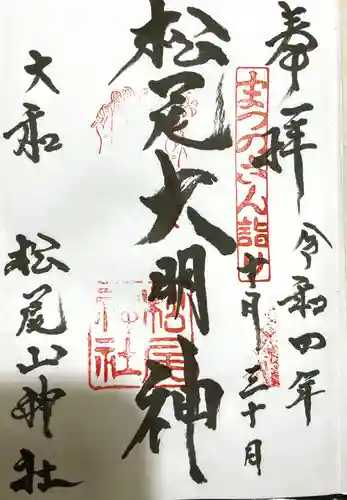 奉拝
令和四年
十月三十日
まつのさん詣
松尾大明神
松尾山神社
大和
松尾山神社